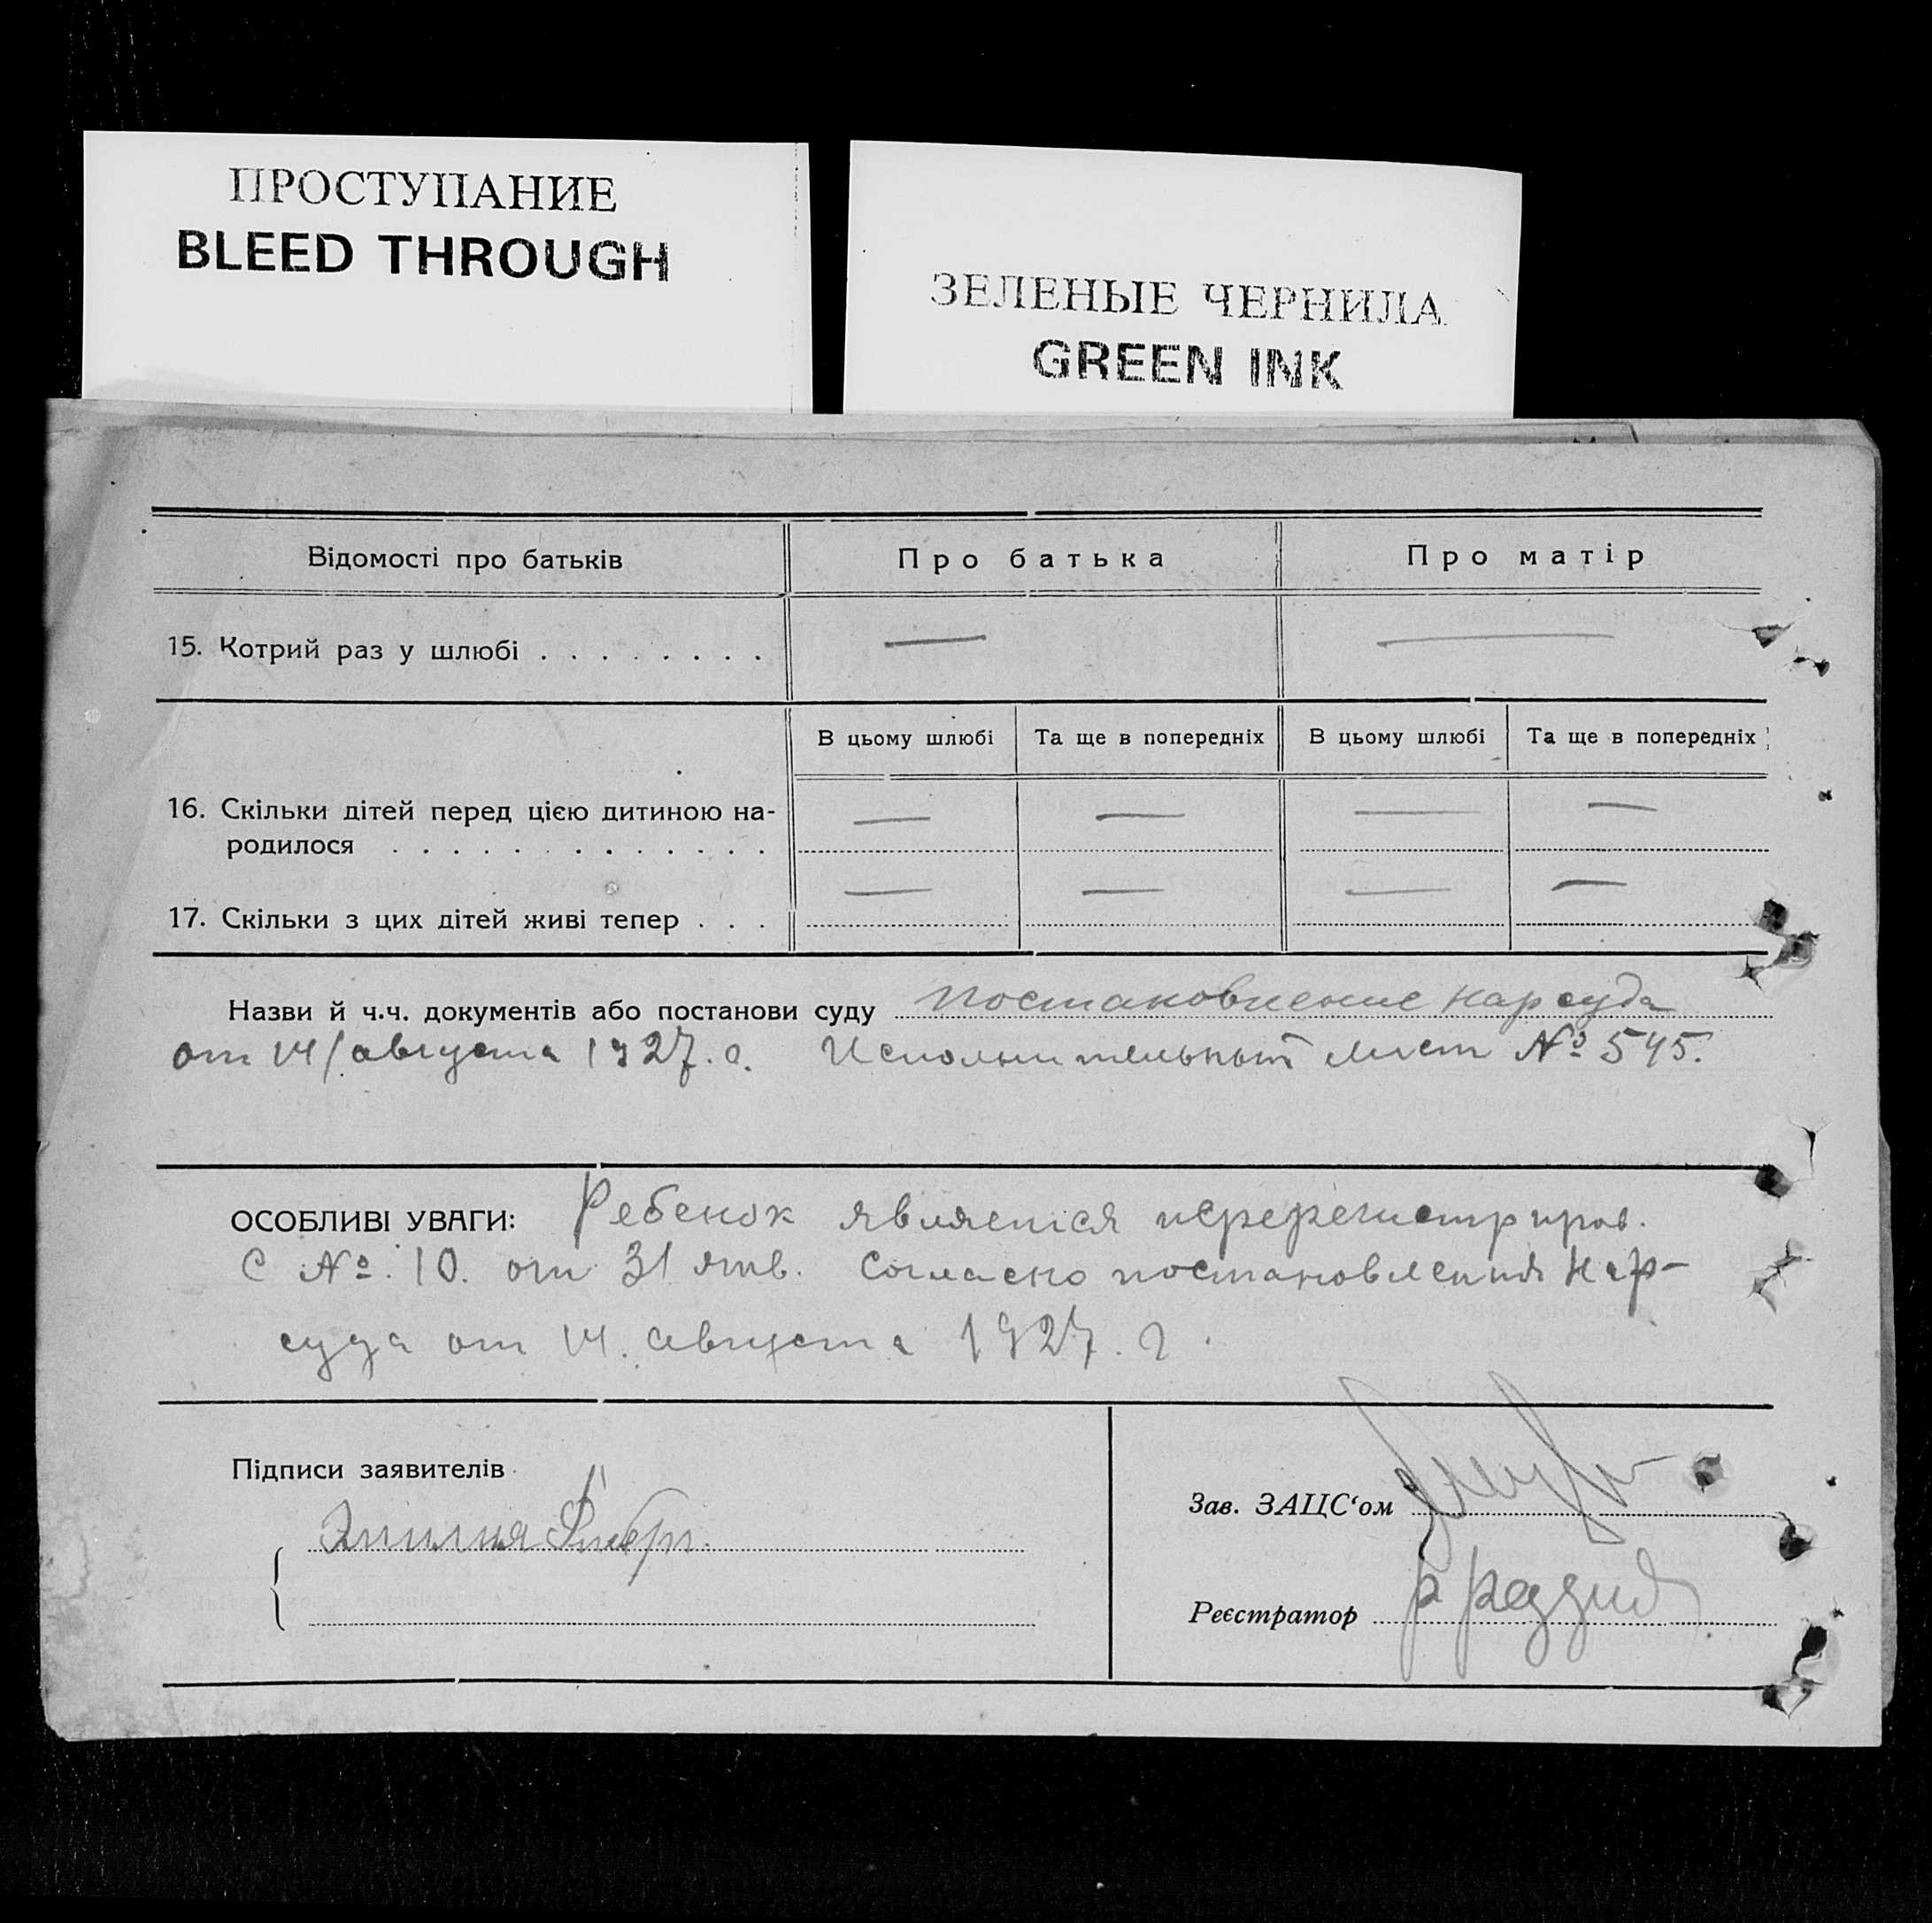 ПРОСТУПАНИЕ
BLEED THROUGH
ЗЕЛЕНЫЕ ЧЕРНИЛА
GREEN INK
Відомості про батьків
Про батька
Про матір
15. Котрий раз у шлюбі . . . . . . . .
—
—
В цьому шлюбі
Та ще в попередніх
В цьому шлюбі
Та ще в попередніх
16. Скільки дітей перед цією дитиною на-
родилося . . . . . . . . . . . . .
— — — —
17. Скільки з цих дітей живі тепер . . .
— — — —
Назви й ч.ч. документів або постанови суду постановление нарсуда
от 14/августа 1927.г. Исполнительный лист № 545.
ОСОБЛИВІ УВАГИ: Ребенок является перерегистриров.
с №. 10. от 31 янв. согласно постановления нар-
суда от 14. августа 1927. г.
Підписи заявителів
Эмилия
Зав. ЗАЦС‘ом
Реєстратор